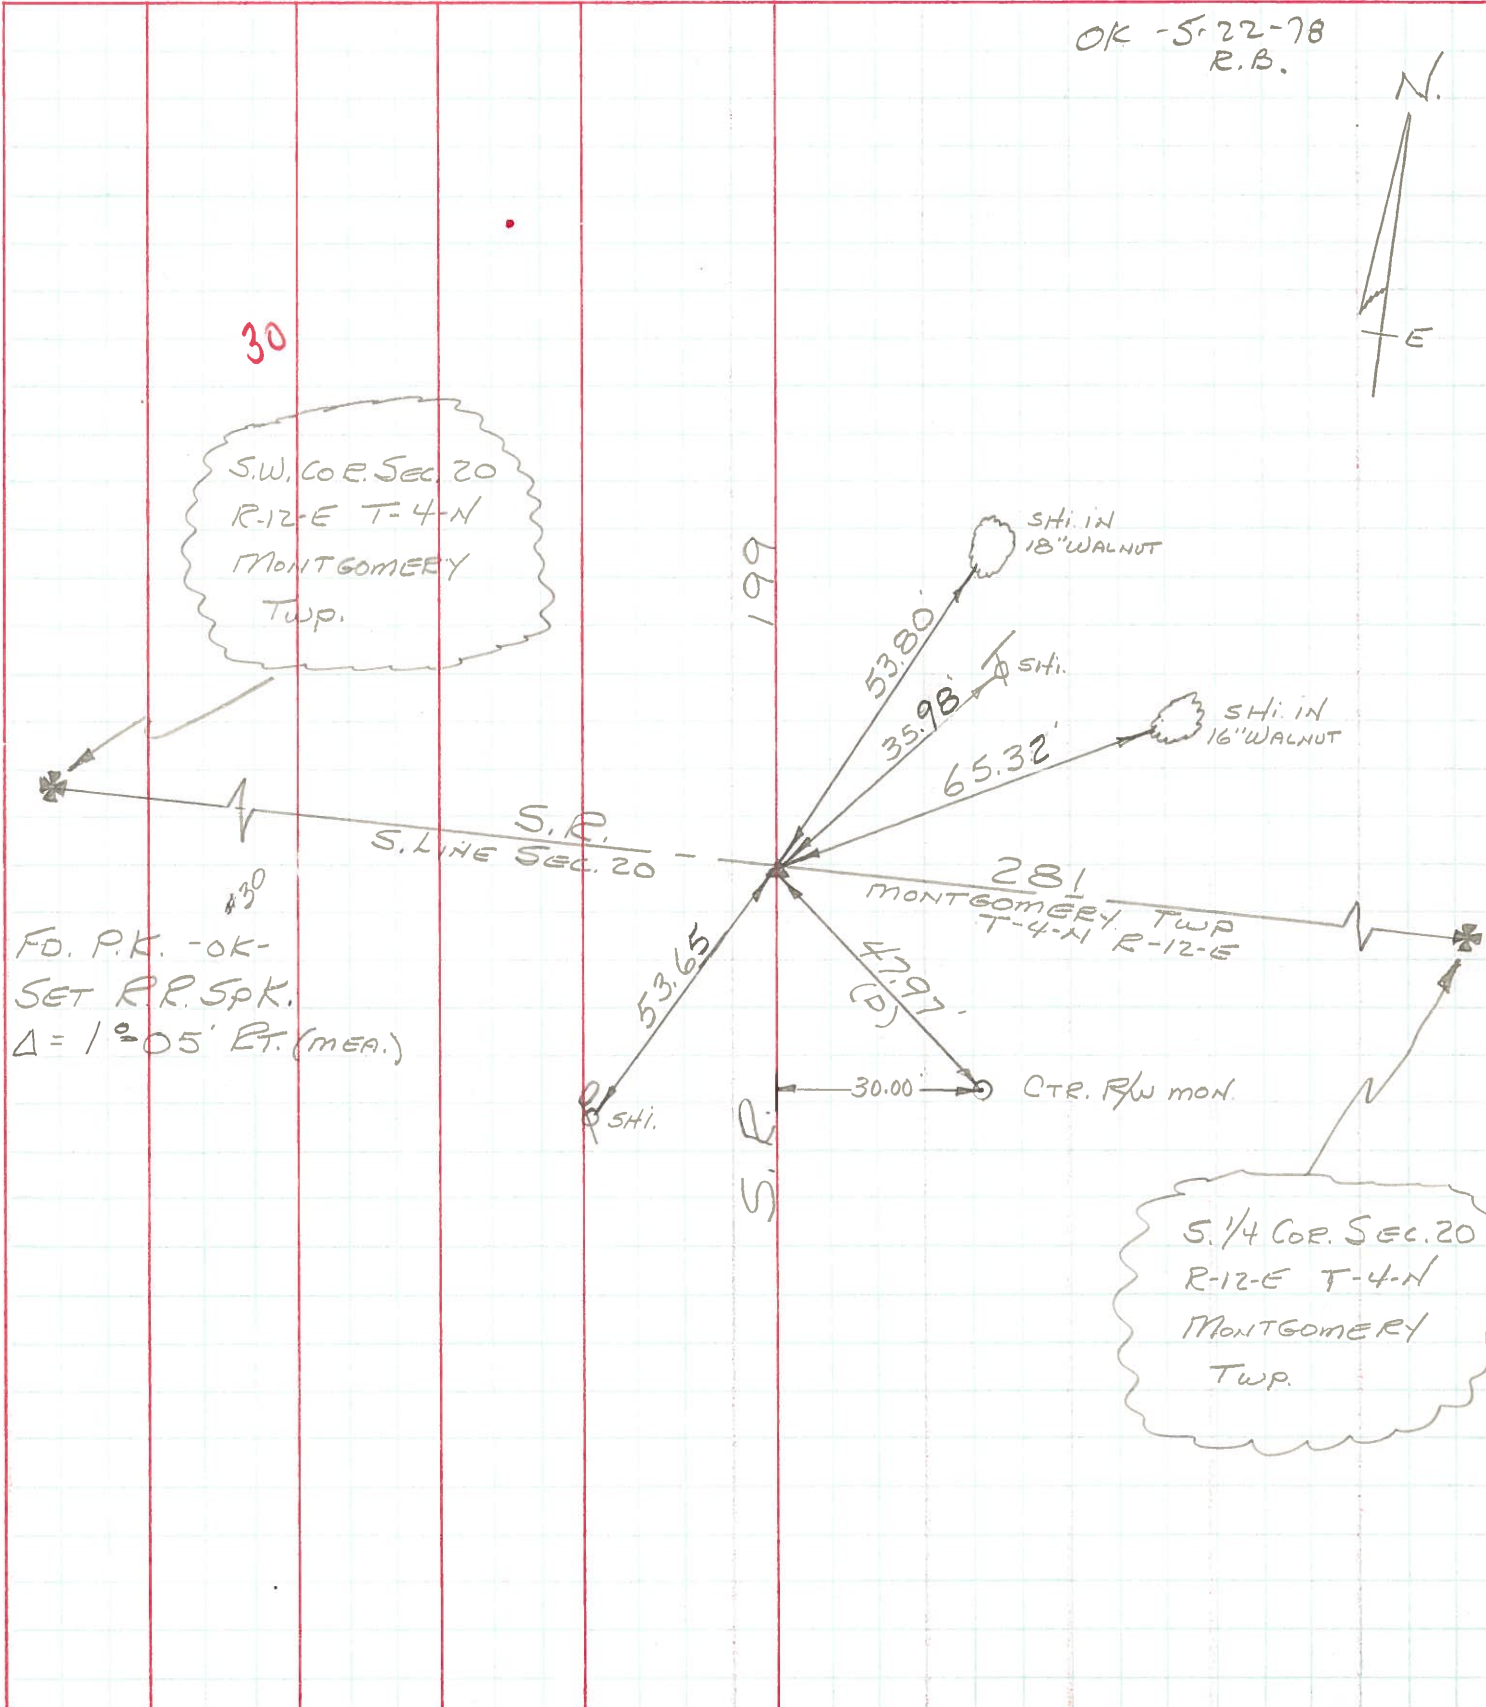 OK -5-22-78
R.B.
N.
E
30
S.W. COR. SEC. 20
R-12-E T-4-N
MONTGOMERY
TWP.
199
SHI. IN
18" WALNUT
53.80'
35.98'
SHI.
65.32'
SHI. IN
16" WALNUT
S.R.
S. LINE SEC. 20
281
MONTGOMERY TWP
T-4-N R-12-E
30
FD. P.K. -OK-
SET R.R. SPK.
Δ = 1°-05' RT. (MEA.)
53.65
SHI.
47.97'
(D)
30.00'
CTR. R/W MON.
S. R.
S. 1/4 COR. SEC. 20
R-12-E T-4-N
MONTGOMERY
TWP.